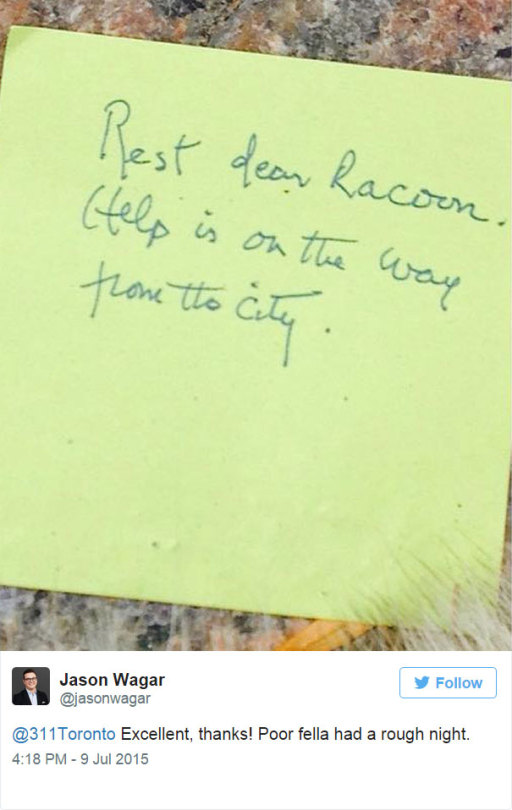 Rest dear Racoon.
Help is on the way
from the city.
Jason Wagar
@jasonwagar
Follow
@311Toronto Excellent, thanks! Poor fella had a rough night.
4:18 PM - 9 Jul 2015